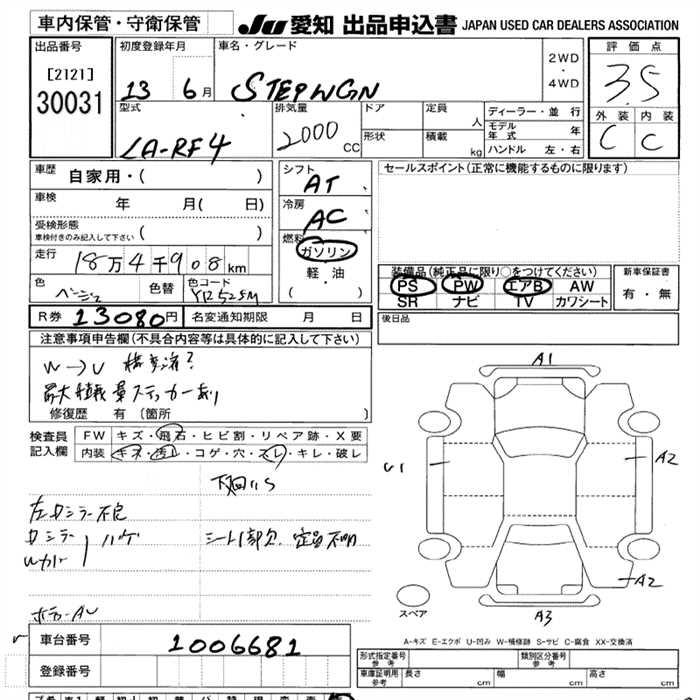 車内保管・守衛保管
JU 愛知 出品申込書 JAPAN USED CAR DEALERS ASSOCIATION
出品番号
[2121]
30031
初度登録年月
13 6月
車名・グレード
STEPWGN
2WD
・
4WD
評価点
3.5
外装 内装
C C
型式
LA-RF4
排気量
2000 CC
ドア
形状
定員 人
積載 kg
ディーラー・並行
モデル年式 年
ハンドル 左・右
車歴
自家用・( )
車検
年 月( 日)
受検形態
車検付きのみ記入して下さい ( )
走行
18万4千908km
色
ベージュ
色替
色コード
YR525M
シフト
AT
冷房
AC
燃料
ガソリン
軽・油
( )
セールスポイント(正常に機能するものに限ります)
装備品(純正品に限り○をつけてください)
PS PW エアB AW
SR ナビ TV カワシート
新車保証書
有・無
R券 13080円
名変通知期限 月 日
後日品
注意事項申告欄(不具合内容等は具体的に記入して下さい)
W→U 構変済?
最大積載量ステッカーあり
修復歴 有 〔箇所 〕
検査員
記入欄
FW キズ・飛石・ヒビ割・リペア跡・X要
内装 キズ・汚レ・コゲ・穴・スレ・キレ・破レ
下廻りS
左カシラー不良
ハゲ
シート1部欠、定員不明
A1
U1
A2
A2
A3
スペア
A-キズ E-エクボ U-凹み W-補修跡 S-サビ C-腐食 XX-交換済
車台番号
1006681
登録番号
形式指定番号
参考
類別区分番号
参考
車庫証明用
参考
長さ cm
幅 cm
高さ cm